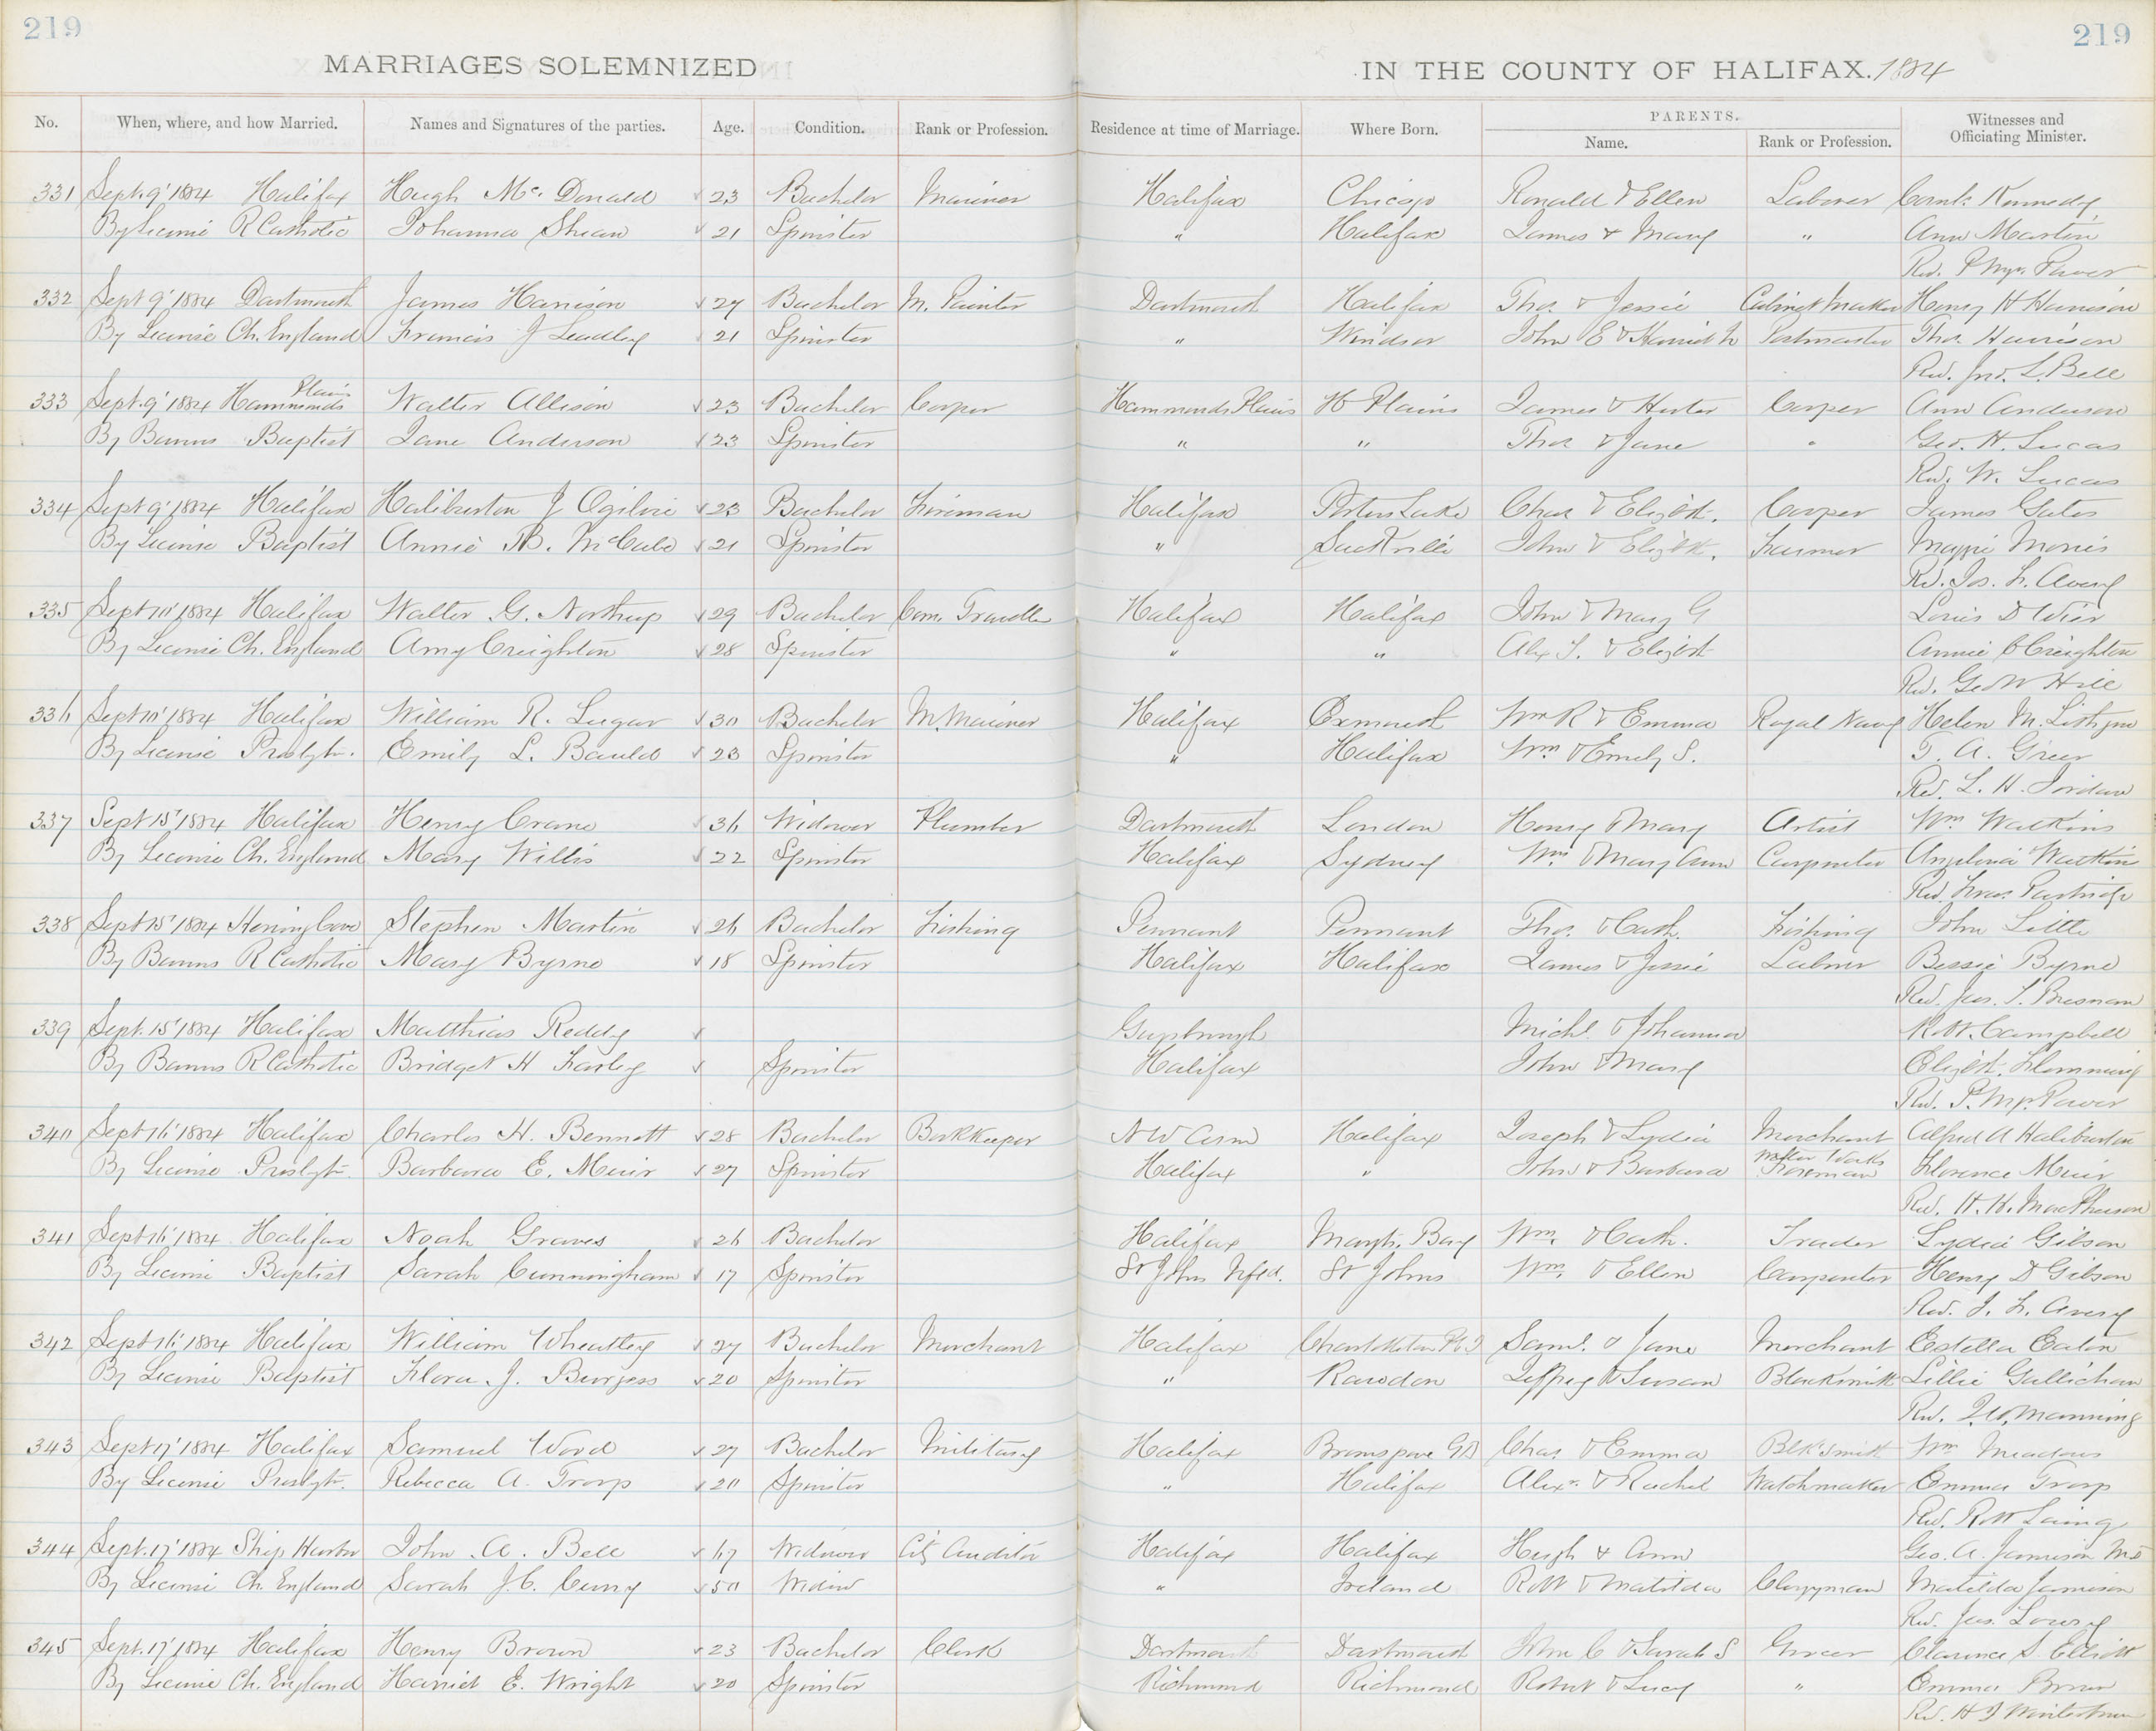 219
219
MARRIAGES SOLEMNIZED IN THE COUNTY OF HALIFAX. 1884
No. When, where, and how Married. Names and Signatures of the parties. Age. Condition. Rank or Profession. Residence at time of Marriage. Where Born. PARENTS. Name. Rank or Profession. Witnesses and Officiating Minister.
331 Sept. 9' 1884 Halifax Hugh Mc. Donald 23 Bachelor Mariner Halifax Chicago Ronald & Ellen Laborer Kennedy
By License R Catholic Johanna Shean 21 Spinster " Halifax James & Mary " Ann Martin
Rev. Power
332 Sept 9' 1884 Dartmouth James Harrison 27 Bachelor M. Painter Dartmouth Halifax Thos. & Jessie Cabinet Maker Henry H Harrison
By License Ch. England Francis J Leadley 21 Spinster " Windsor John E & Harriet Postmaster Thos. Harrison
Rev. Jno. L. Bell
333 Sept. 9' 1884 Hammonds Plains Walter Allison 23 Bachelor Cooper Hammonds Plains H Plains James & Hester Cooper Ann Anderson
By Banns Baptist Jane Anderson 23 Spinster " " Thos & Jane " Geo. H. Lucas
Rev. W. Lucas
334 Sept 9' 1884 Halifax Haliburton J Ogilvie 23 Bachelor Fireman Halifax Porters Lake Chas & Elizbth. Cooper James Gates
By License Baptist Annie B. McCabe 21 Spinster " Sackville John & Elizbth. Farmer Maggie Morris
Rev. Jos. F. Avery
335 Sept 10' 1884 Halifax Walter G. Northup 29 Bachelor Com. Traveller Halifax Halifax John & Mary G Louis D Wier
By License Ch. England Amy Creighton 28 Spinster " " Alex & Elizbth Annie Creighton
Rev. Geo W Hill
336 Sept 10' 1884 Halifax William R. Lugar 30 Bachelor M. Mariner Halifax Exmouth Wm R & Emma Royal Navy Helen M.
By License Presbytn. Emily L. Bauld 23 Spinster " Halifax Wm & Emily S. T. A. Greer
Rev. L. H. Jordan
337 Sept 15' 1884 Halifax Henry Crane 36 Widower Plumber Dartmouth London Henry & Mary Artist Wm Watkins
By License Ch. England Mary Willis 22 Spinster Halifax Sydney Wm & Mary Ann Carpenter Angelina Watkins
Rev. Fras. Partridge
338 Sept 15' 1884 Herring Cove Stephen Martin 26 Bachelor Fishing Pennant Pennant Thos. & Cath. Fishing John Little
By Banns R Catholic Mary Byrne 18 Spinster Halifax Halifax James & Jessie Laborer Bessie Byrne
Rev. Jas. Bresnan
339 Sept. 15' 1884 Halifax Matthias Reddy Guysbrough Michl. & Johanna Robt. Campbell
By Banns R Catholic Bridget H Farley Spinster Halifax John & Mary Elizbth. Flemming
Rev. Power
340 Sept 16' 1884 Halifax Charles H. Bennett 28 Bachelor BookKeeper N W Arm Halifax Joseph & Lydia Merchant Alfred A Haliburton
By License Presbytn Barbara E. Muir 27 Spinster Halifax " John & Barbara Water Works Foreman Florence Muir
Rev. H. H. MacPherson
341 Sept 16' 1884 Halifax Noah Graves 26 Bachelor Halifax Bay Wm. & Cath. Trader Lydia Gibson
By License Baptist Sarah Cunningham 17 Spinster St Johns Nfld. St Johns Wm. & Ellen Carpenter Henry D Gibson
Rev. J. F. Avery
342 Sept 16' 1884 Halifax William Wheatley 27 Bachelor Merchant Halifax Charlottetown P E I Saml. & Jane Merchant Estella Eaton
By License Baptist Flora J. Burgess 20 Spinster " Rawdon & Susan Blacksmith Lillie Gallichan
Rev. Manning
343 Sept 17' 1884 Halifax Samuel Wood 27 Bachelor Military Halifax Bromsgrove GB Chas. & Emma Blk Smith Wm Meadows
By License Presbytn. Rebecca A. Troop 20 Spinster " Halifax Alexr. & Rachel Watchmaker Emma Troop
Rev. Robt Laing
344 Sept. 17' 1884 Ship Harbor John A. Bell 67 Widower City Auditor Halifax Halifax Hugh & Ann Geo. A. Jamison
By License Ch. England Sarah J. C. Curry 50 Widow " Ireland Robt & Matilda Clergyman Matilda Jamison
Rev. Jas. Lowry
345 Sept. 17' 1884 Halifax Henry Brown 23 Bachelor Clerk Dartmouth Dartmouth John C & Sarah S Grocer Clarence S. Elliott
By License Ch. England Harriet E. Wright 20 Spinster Richmond Richmond Robert & Lucy " Emma Brown
Rev. H